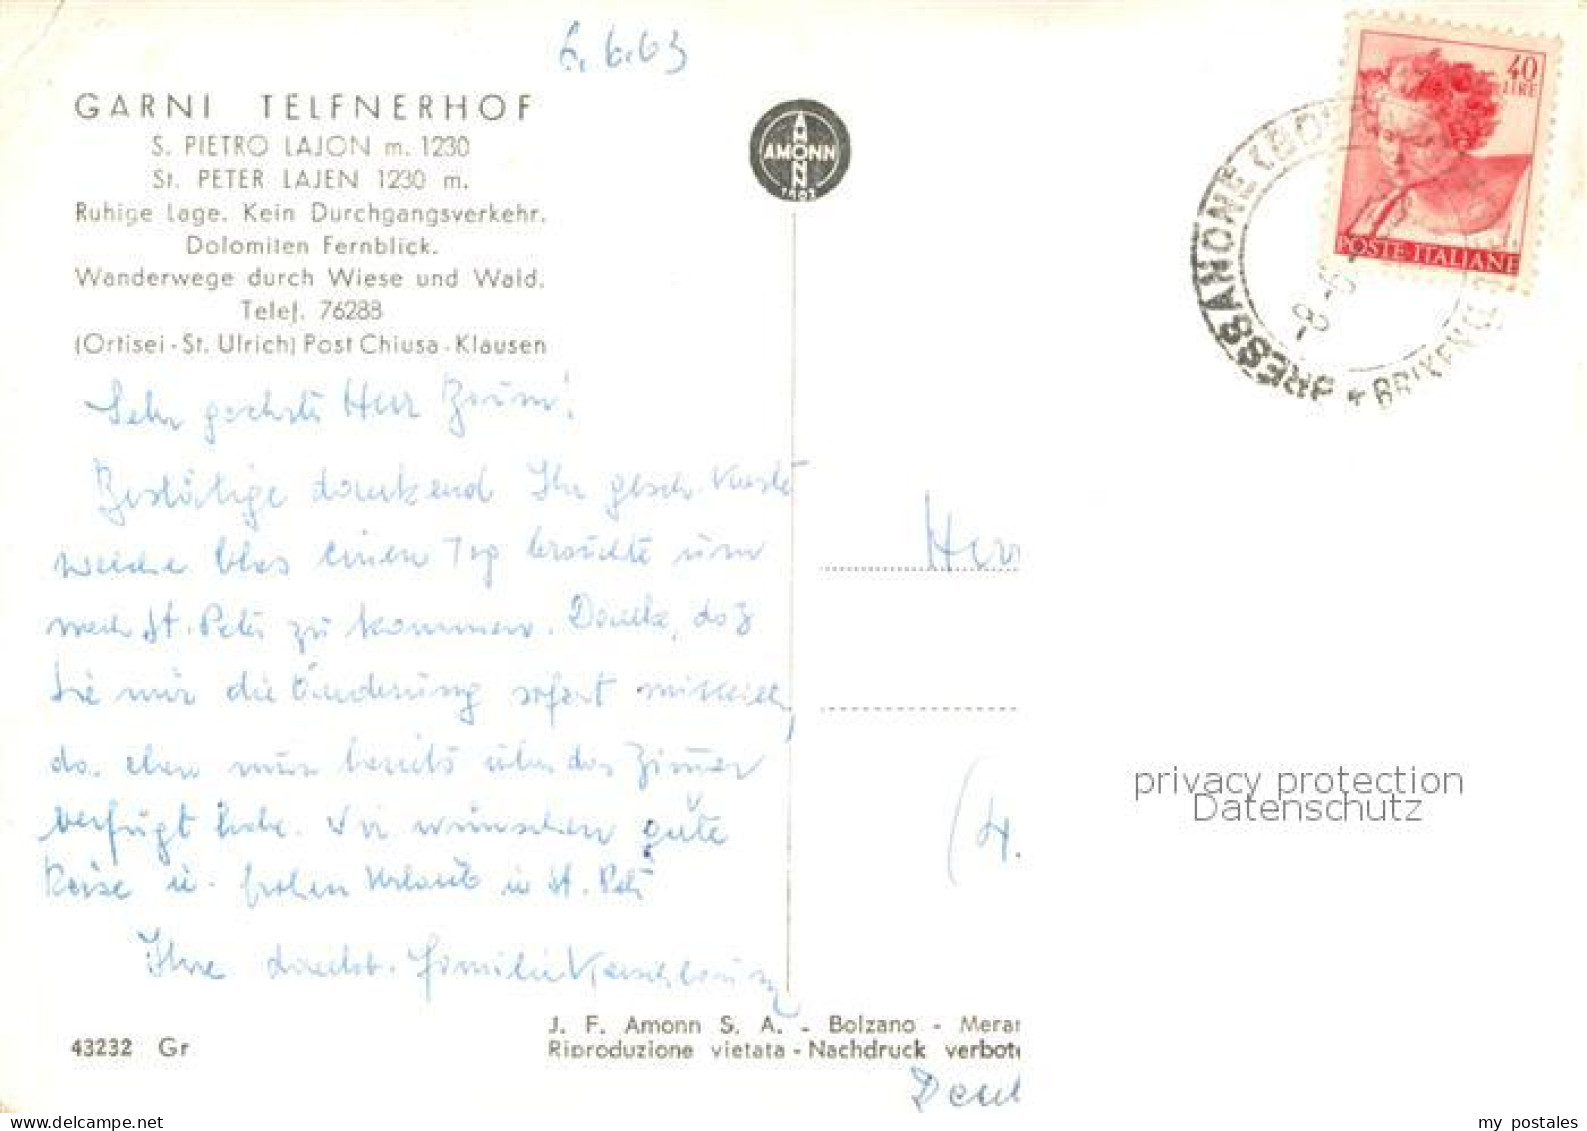 6.6.63
GARNI TELFNERHOF
S. PIETRO LAJON m. 1230
St. PETER LAJEN 1230 m.
Ruhige Lage. Kein Durchgangsverkehr.
Dolomiten Fernblick.
Wanderwege durch Wiese und Wald.
Telef. 76288
(Ortisei - St. Ulrich) Post Chiusa - Klausen
Sehr geehrter Herr
Bestätige dankend Ihr gesch. Karte
welche blos einen Tag brauchte um
nach St. Peter zu kommen. Danke, daß
Sie mir die Änderung sofort mitteilen,
da eben nun bereits über das Zimmer
verfügt habe. Wir wünschen gute
Reise u. frohen Urlaub in St. Peter
Ihre dankb. Familie
AMONN
AMONN
1802
40
LIRE
POSTE ITALIANE
BRESSANONE (BO
BRIXEN
8-6
Herr
(4.
privacy protection
Datenschutz
J. F. Amonn S. A. - Bolzano - Meran
Riproduzione vietata - Nachdruck verbote
43232 Gr
Deut
my postales